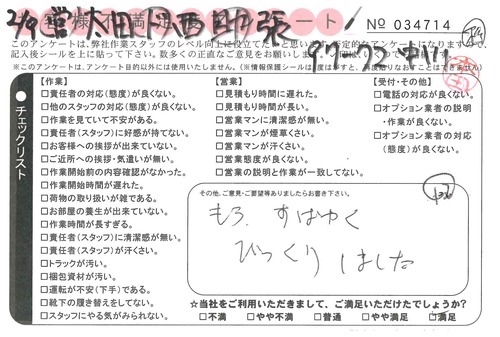 お客様不満足アンケート
No 034714
このアンケートは、弊社作業スタッフのレベル向上に役立てたいと思います。否定的なアンケートになりますので、
記入後シールを上に貼って下さい。数多くの正直なご意見をお願いします。
※このアンケートは、アンケート目的以外には使用いたしません。(※情報保護シールは1度はがすと、再度貼りなおすことはできません)
チェックリスト
【作業】
□責任者の対応(態度)が良くない。
□他のスタッフの対応(態度)が良くない。
□作業を見ていて不安がある。
□責任者(スタッフ)に好感が持てない。
□お客様への挨拶が出来ていない。
□ご近所への挨拶・気遣いが無い。
□作業開始前の内容確認がなかった。
□作業開始時間が遅れた。
□荷物の取り扱いが雑である。
□お部屋の養生が出来ていない。
□作業時間が長すぎる。
□責任者(スタッフ)に清潔感が無い。
□責任者(スタッフ)が汗くさい。
□トラックが汚い。
□梱包資材が汚い。
□運転が不安(下手)である。
□靴下の履き替えをしてない。
□スタッフにやる気がみられない。
【営業】
□見積もり時間に遅れた。
□見積もり時間が長い。
□営業マンに清潔感が無い。
□営業マンが煙草くさい。
□営業マンが汗くさい。
□営業態度が良くない。
□営業の説明と作業が一致してない。
【受付・その他】
□電話の対応が良くない。
□オプション業者の説明
・作業が良くない。
□オプション業者の対応
(態度)が良くない。
その他、ご意見・ご要望等ありましたらお書き下さい。
もう、すばやく
びっくりしました
☆当社をご利用いただきまして、ご満足いただけたでしょうか?
□不満 □やや不満 □普通 □やや満足 □満足